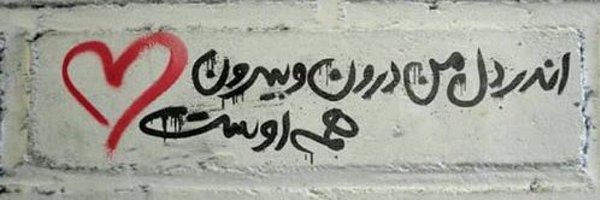 اندر دل من درون و بیرون
همه اوست